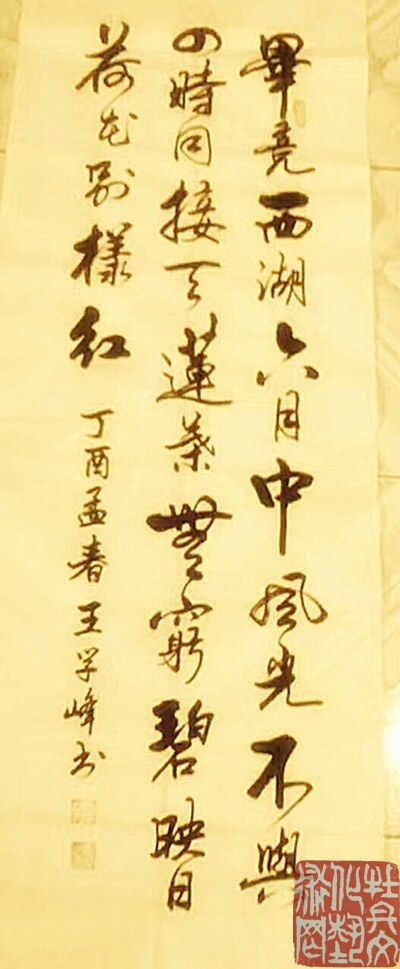 畢竟西湖六月中風光不與
四時同接天蓮葉無窮碧映日
荷花别樣紅
丁酉孟春王学峰书